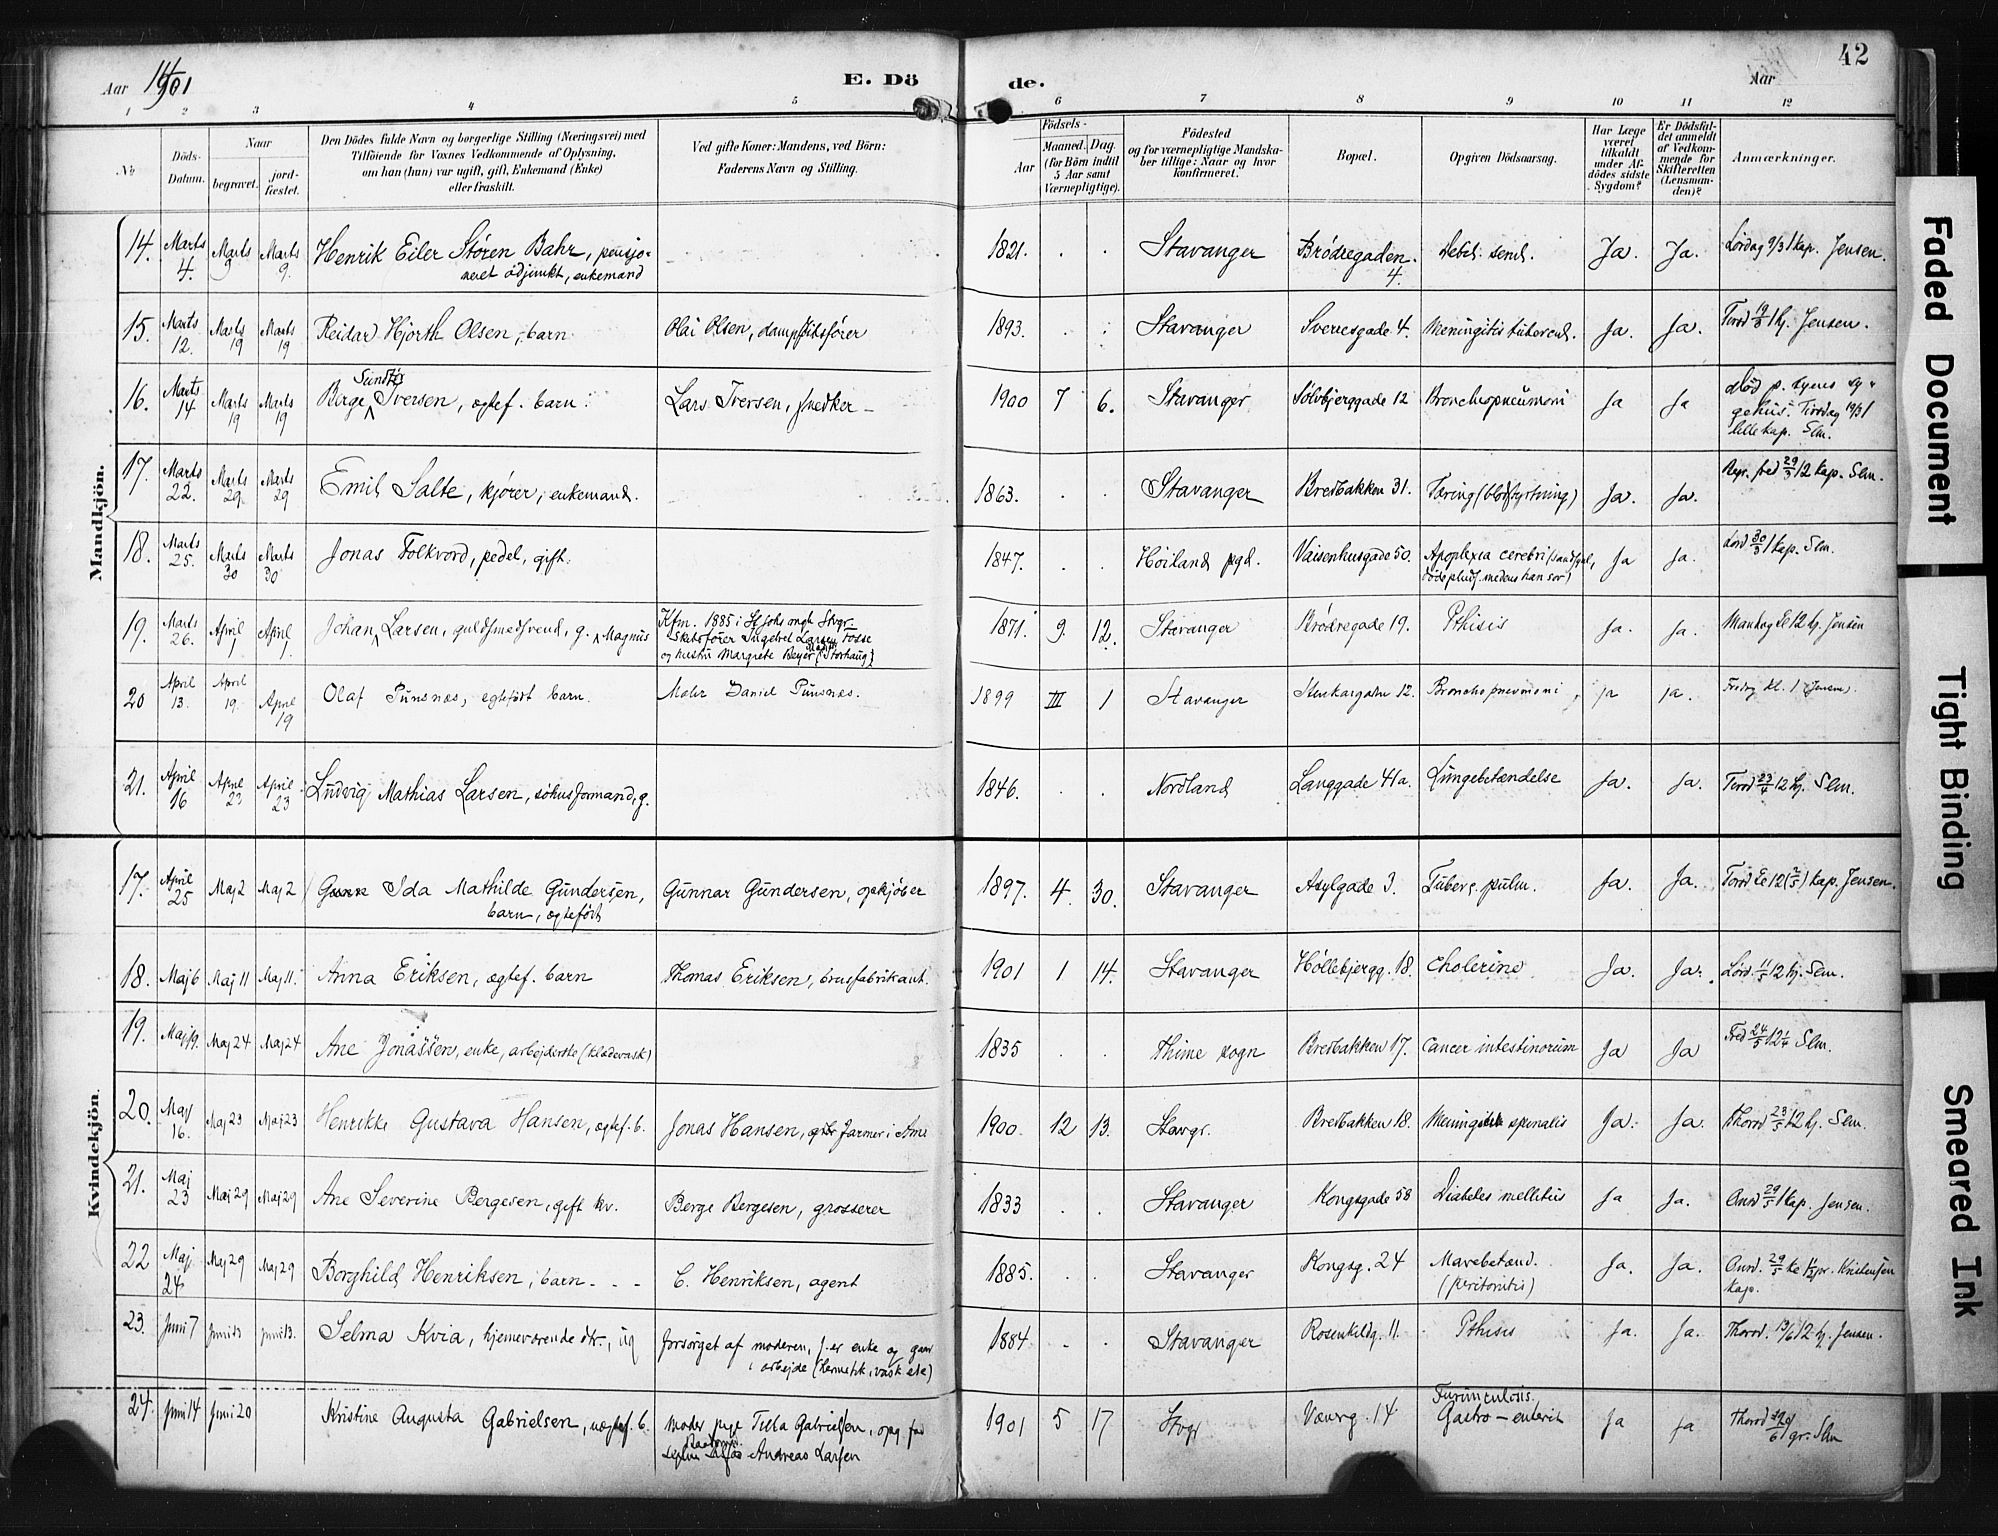 Aar 1901
E. Dö
de.
Aar
42
1 2 3 4 5 6 7 8 9 10 11 12
No
Döds-Datum.
Naar
begravet.
jord-fæstet.
Den Dödes fulde Navn og borgerlige Stilling (Næringsvei) med
Tilföiende for Voxnes Vedkommende af Oplysning,
om han (hun) var ugift, gift, Enkemand (Enke)
eller fraskilt.
Ved gifte Koner: Mandens, ved Börn:
Faderens Navn og Stilling.
Födsels-
Aar
Maaned. Dag.
(for Börn indtil
5 Aar samt
Værnepligtige).
Födested
og for værnepligtige Mandska-
ber tillige: Naar og hvor
konfirmeret.
Bopæl.
Opgiven Dödsaarsag.
Har Læge
været
tilkaldt
under Af-
dödes sidste
Sygdom?
Er Dödsfal-
det anmeldt
af Vedkom-
mende for
Skifteretten
(Lensman-
den)?
Anmærkninger.
Mandkjön.
14. Marts 4. Marts 9 Marts 9. Henrik Eiler Stören Bahr, pensjo-
neret adjunkt, enkemand
1821. Stavanger Brödregaden 4. Debil. senil. Ja. Ja. Lördag 9/3 1 kap. Jensen.
15. Marts 12. Marts 19 Marts 19 Reidar Hjorth Olsen, barn Olai Olsen, dampskibsförer 1893. Stavanger Sverresgade 4. Meningitis tubercul. Ja. Ja. Tirsd 19/3 1 hj. Jensen.
16. Marts 14 Marts 19 Marts 19 Birge Sundför Iversen, ægtef. barn Lars Iversen, snedker 1900 7 6. Stavanger Sölvbjerggade 12 Bronchopneumoni Ja Ja död p. byens sy-
gehus. Tirsdag 19/3 1
lille kap. Slm.
17. Marts 22. Marts 29. Marts 29 Emil Salte, kjörer, enkemand. 1863. Stavanger Bredbakken 31. Tæring (blodstyrtning) Ja. Ja. fred 29/3 12 kap. Slm.
18. Marts 25. Marts 30 Marts 30 Jonas Folkvord, pedel, gift. 1847. Höiland pgd. Vaisenhusgade 50. Apoplexia cerebri
döde pluds. medens han sov) Ja Ja. Lörd 30/3 1 kap. Slm.
19. Marts 26. April 1 April 1. Johan Larsen, guldsmedsvend, g. Magnus Kfm. 1885 i St Johs mgh. Stvgr.
Skibsförer Ingebret Larsen Fosse
og hustru Margrete Beyer (Storhaug)
1871. 9. 12. Stavanger Brödregade 19. Pthisis Ja. Ja. Mandag kl 12 hj. Jensen
20 April 13. April 19. April 19 Olaf Punsnæs, egtefödt barn. Maler Daniel Punsnæs. 1899 III 1 Stavanger Stenkargaten 12. Bronchopneumoni, ja ja. Fredag kl. 1 (Jensen).
21. April 16 April 23 April 23 Ludvig Mathias Larsen, söhusformand, g. 1846. Nordland Langgade 41a. Lungebetændelse Ja. Ja. Tirsd 23/4 12 hj. Slm.
Kvindekjön.
17. April 25 Maj 2 Maj 2 Ida Mathilde Gundersen,
barn, ægtefödt
Gunnar Gundersen, opkjöber 1897. 4. 30. Stavanger Asylgade 3. Tuberc. pulm. Ja. Ja. Torsd kl 12 (2/5) kap. Jensen.
18. Maj 6 Maj 11 Maj 11. Anna Eriksen, ægtef. barn Thomas Eriksen, brusfabrikant. 1901 1 14. Stavanger Höllebjergg. 18. Cholerine Ja. Ja. Lörd. 11/5 12 hj. Slm.
19. Maj 19. Maj 24 Maj 24 Ane Jonassen, enke, arbejderske (klædevask) 1835 Thime sogn Bredbakken 17. Cancer intestinorum Ja Ja Fred 24/5 12 1/4 Slm.
20. Maj 16. Maj 23 Maj 23 Henrikke Gustava Hansen, ægtef. b. Jonas Hansen, farmer i Ame 1900. 12 13. Stavgr. Bredbakken 18. Meningitis spinalis Ja. Ja. Thorsd 23/5 12 hj. Slm.
21. Maj 23 Maj 29 Maj 29 Ane Severine Bergesen, gift kv. Berge Bergesen, grosserer 1833 Stavanger Kongsgade 58 Diabetes mellitus Ja Ja. Onsd 29/5 1 kap. Jensen.
22 Maj 24 Maj 29 Maj 29 Borghild Henriksen, barn C. Henriksen, agent 1885. Stavanger Kongsg. 24 Mavebetænd.
(peritonitis) Ja. Ja. Onsd. 29/5 Kristensen
kap.
23. Juni 7 Juni 13 Juni 13. Selma Kvia, hjemeværende dtr., ug forsörget af moderen, s. er enke og gaar
i arbejde (hermetik, vask etc)
1884 Stavanger Rosenkildg. 11. Pthisis Ja. Ja. Thorsd. 13/6 12 hj. Jensen.
24. Juni 14 Juni 20 Kristine Augusta Gabrielsen, uægtef. b. Moder pige Tilla Gabrielsen, opg. far
Andreas Larsen
1901 5 17 Stvgr Vaurg. 14 Furunculosis.
Gastro-enterit Ja ja Thorsd 20/6 gr. Slm
Faded Document
Tight Binding
Smeared Ink